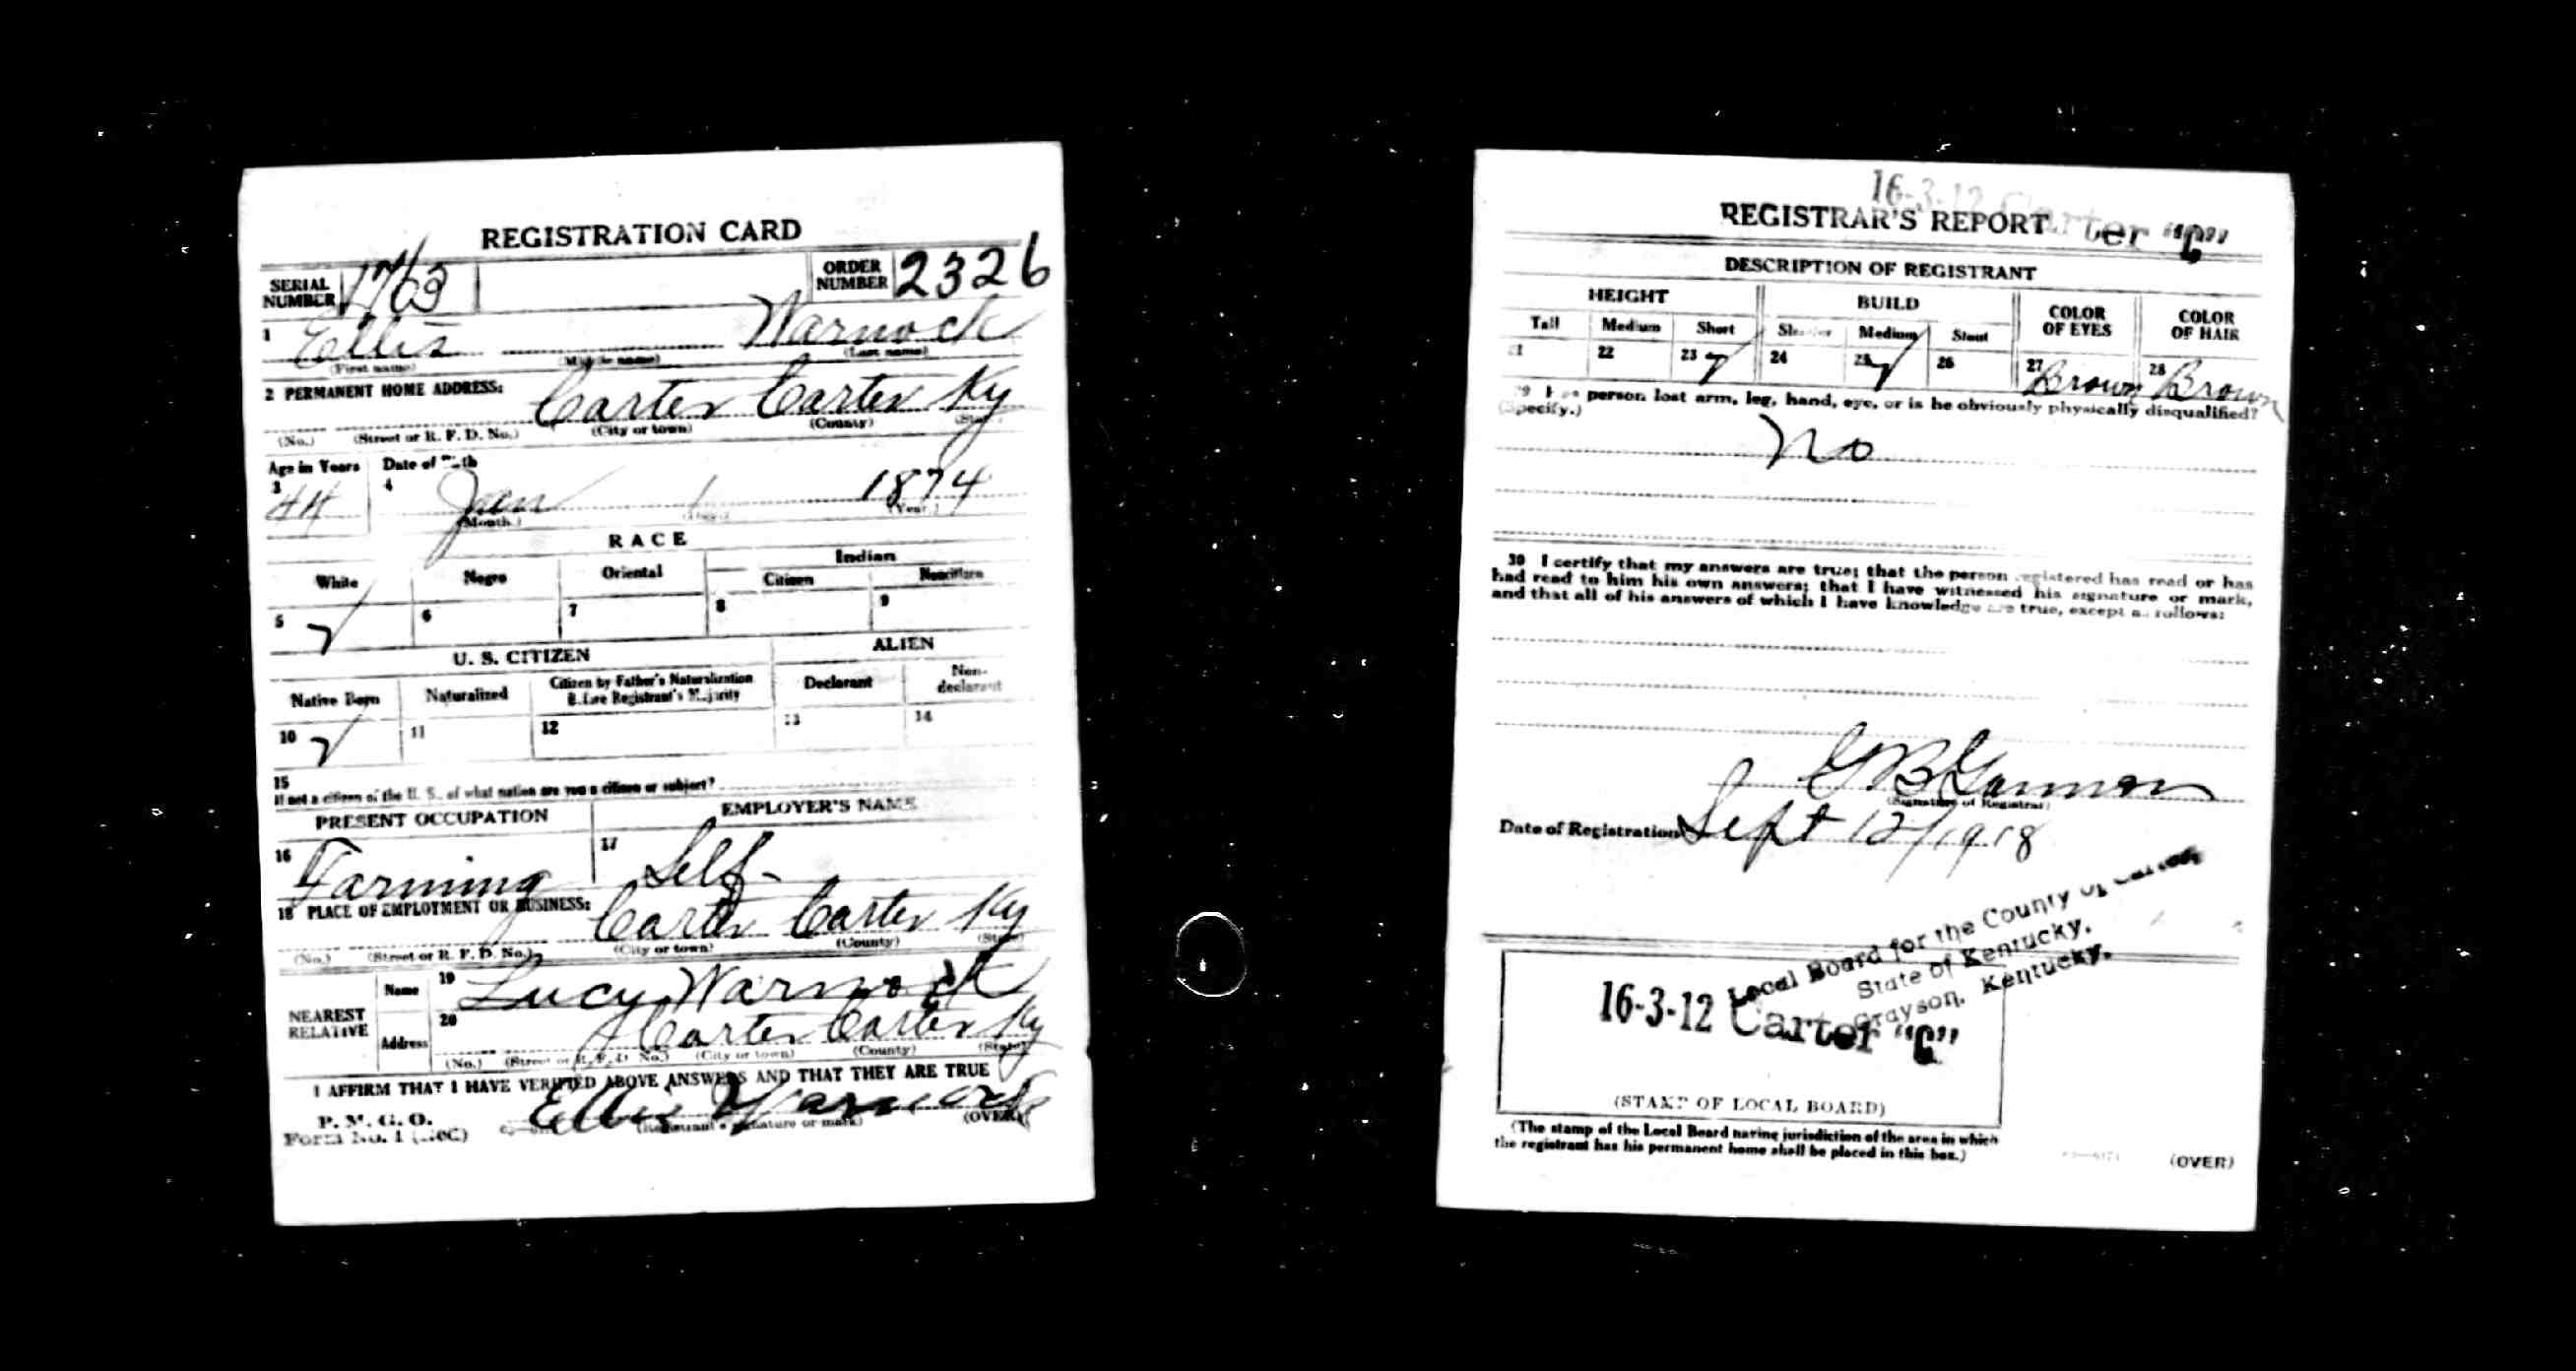 REGISTRATION CARD
SERIAL NUMBER 1763 ORDER NUMBER 2326
1 Ellis Warnock
(First name) (Middle name) (Last name)
2 PERMANENT HOME ADDRESS:
Carter Carter Ky
(No.) (Street or R. F. D. No.) (City or town) (County) (State)
Age in Years Date of Birth
3 44 4 Jan 1 1874
(Month.) (Year.)
RACE
White Negro Oriental Indian
Citizen Noncitizen
5 ✓ 6 7 8 9
U. S. CITIZEN ALIEN
Native Born Naturalized Citizen by Father's Naturalization Before Registrant's Majority Declarant Non-declarant
10 ✓ 11 12 13 14
15
If not a citizen of the U. S., of what nation are you a citizen or subject?
PRESENT OCCUPATION EMPLOYER'S NAME
16 Farming 17 Self-
18 PLACE OF EMPLOYMENT OR BUSINESS:
Carter Carter Ky
(No.) (Street or R. F. D. No.) (City or town) (County) (State)
NEAREST RELATIVE
Name 19 Lucy Warnock
Address 20 Carter Carter Ky
(No.) (Street or R. F. D. No.) (City or town) (County) (State)
I AFFIRM THAT I HAVE VERIFIED ABOVE ANSWERS AND THAT THEY ARE TRUE
P. M. G. O.
Form No. 1 Ellis Warnock
(Registrant's signature or mark) (OVER)
16-3-12 Carter "C"
REGISTRAR'S REPORT
DESCRIPTION OF REGISTRANT
HEIGHT BUILD COLOR OF EYES COLOR OF HAIR
Tall Medium Short Slender Medium Stout
21 22 23 ✓ 24 25 ✓ 26 27 Brown 28 Brown
29 Has person lost arm, leg, hand, eye, or is he obviously physically disqualified?
(Specify.)
No
30 I certify that my answers are true; that the person registered has read or has
had read to him his own answers; that I have witnessed his signature or mark,
and that all of his answers of which I have knowledge are true, except as follows:
(Signature of Registrar)
Date of Registration Sept 12/1918
Local Board for the County of Carter,
State of Kentucky,
Grayson, Kentucky.
16-3-12 Carter "C"
(STAMP OF LOCAL BOARD)
(The stamp of the Local Board having jurisdiction of the area in which
the registrant has his permanent home shall be placed in this box.)
(OVER)